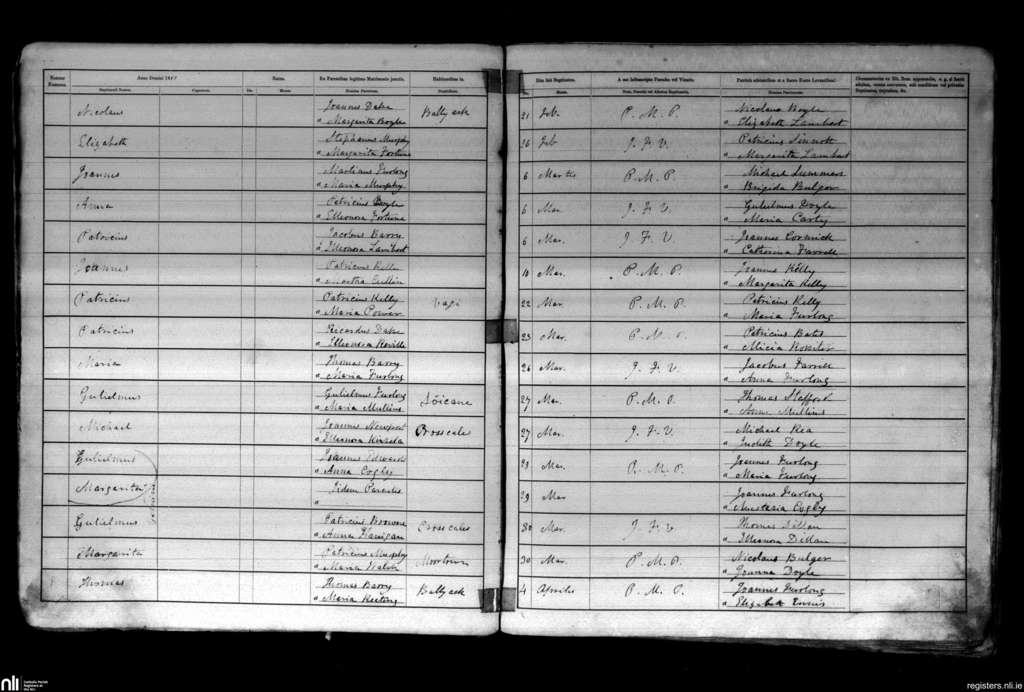 Anno Domini 18
Ex Parentibus legitimo Matrimonio junctis.
Habitantibus in
Die fuit Baptizatus.
A me infrascripto Parocho vel Vicario.
Nicolaus Joannes Dake Ballyask 21 Feb. P. M. P. Nicolaus Boyle
" Margarita Boyle " Elizabeth Lambert
Elizabeth Stephanus Murphy 26 Feb J. F. V. Patricius Sinnott
" Margarita Fortune " Margarita Lambert
Joannes Furlong 6 P. M. P. Michael Summers
" Maria Murphy " Brigida Bulger
Anna Patricius Doyle 6 Mar J. F. V. Gulielmus Doyle
" Elleonora Fortune " Maria Carty
Patricius Jacobus Barry 6 Mar. J. F. V. Joannes Cormick
" Elleonora Lambert " Catherina Farrell
Joannes Patricius Kelly 10 Mar. P. M. P. Joannes Kelly
" Martha " Margarita Kelly
Patricius Patricius Kelly Vagi 22 Mar P. M. P. Patricius Kelly
" Maria Power " Maria Furlong
Patricius Ricardus Dake 23 Mar. P. M. P. Patricius Bates
" Elleonora " Alicia Rossiter
Maria Thomas Barry 26 Mar. J. F. V. Jacobus Farrell
" Maria Furlong " Anna Furlong
Gulielmus Gulielmus Furlong 27 Mar. P. M. P. Thomas Stafford
" Maria Mullins " Anne Mullins
Michael Joannes Newport Crosscales 27 Mar. J. F. V. Michael Rea
" Elleonora Kinsela " Judith Doyle
Gulielmus Joannes Edwards Mar. P. M. P. Joannes Furlong
" Anna Cogley " Maria Furlong
Margarita Iidem Parentes 29 Mar Joannes Furlong
" " Anastasia Cogley
Gulielmus Patricius Browne Crosscales 30 Mar. J. F. V. Thomas Dillon
" Anna Flanigan " Elleonora Dillon
Margarita Patricius Murphy Moortown 30 Mar. P. M. P. Nicolaus Bulger
" Maria Walsh " Joanna Doyle
Thomas Thomas Barry Ballyask 4 Aprilis P. M. P. Joannes Furlong
" Maria Keating " Elizabeth Ennis
nli Catholic Parish
Registers at
the NLI
registers.nli.ie